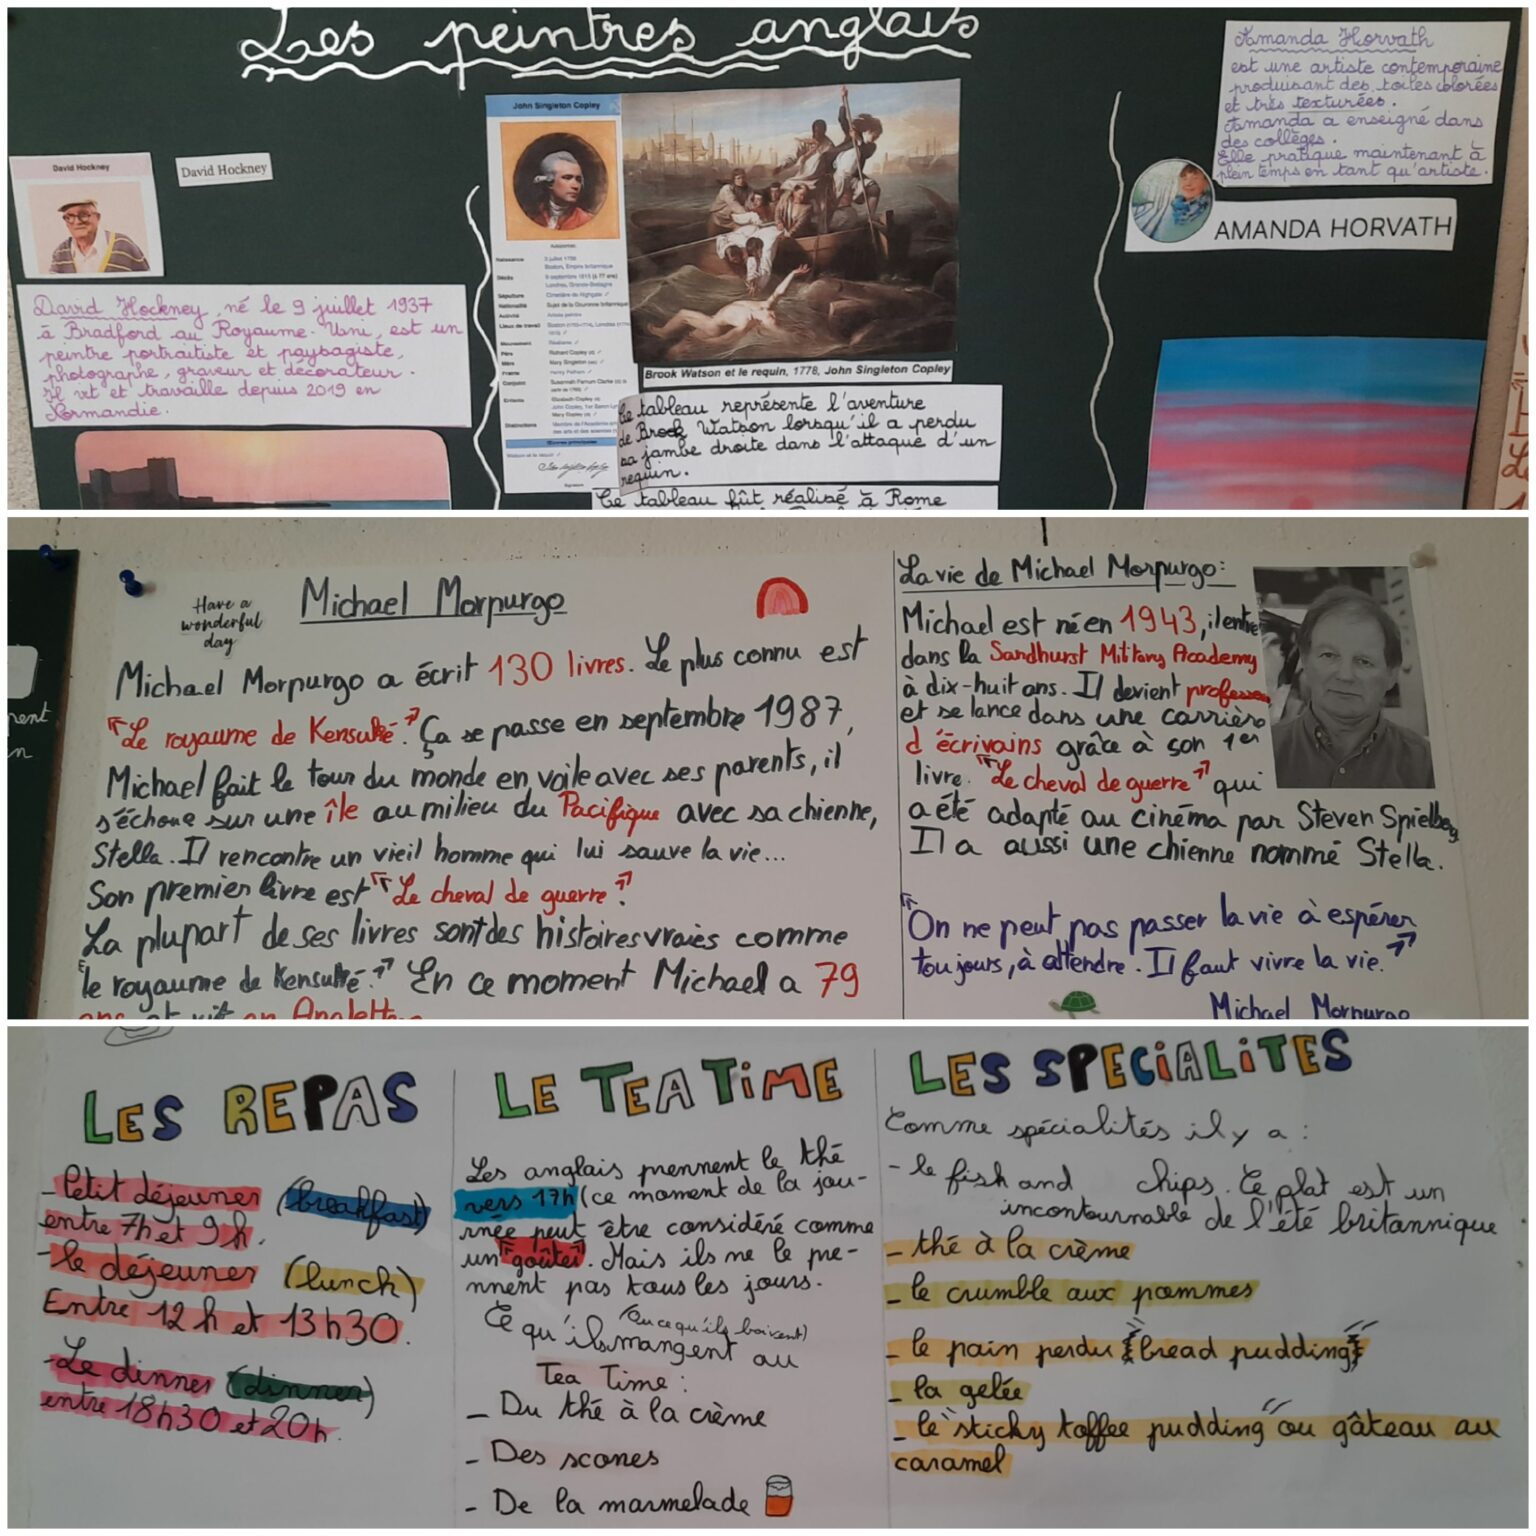 Les peintres anglais
David Hockney
David Hockney
David Hockney, né le 9 juillet 1937
à Bradford au Royaume-Uni, est un
peintre portraitiste et paysagiste,
photographe, graveur et décorateur.
Il vit et travaille depuis 2019 en
Normandie.
John Singleton Copley
Autoportrait.
Naissance
3 juillet 1738
Boston, Empire britannique
Décès
9 septembre 1815 (à 77 ans)
Londres, Grande-Bretagne
Sépulture
Cimetière de Highgate
Nationalité
Sujet de la Couronne britannique
Activité
Artiste peintre
Lieux de travail
Mouvement
Réalisme
Père
Richard Copley
Mère
Mary Singleton
Fratrie
Henry Pelham
Conjoint
Susannah Farnum Clarke
Enfants
Elizabeth Copley
Mary Copley
Distinctions
Œuvres principales
Watson et le requin
Signature
Brook Watson et le requin, 1778, John Singleton Copley
Ce tableau représente l'aventure
de Brook Watson lorsqu'il a perdu
sa jambe droite dans l'attaque d'un
requin.
Ce tableau fût réalisé à Rome
Amanda Horvath
est une artiste contemporaine
produisant des toiles colorées
et très texturées.
Amanda a enseigné dans
des collèges.
Elle pratique maintenant à
plein temps en tant qu'artiste.
AMANDA HORVATH
Have a
wonderful
day
Michael Morpurgo
Michael Morpurgo a écrit 130 livres. Le plus connu est
"Le royaume de Kensuké". Ça se passe en septembre 1987,
Michael fait le tour du monde en voile avec ses parents, il
s'échoue sur une île au milieu du Pacifique avec sa chienne,
Stella. Il rencontre un vieil homme qui lui sauve la vie...
Son premier livre est "Le cheval de guerre".
La plupart de ses livres sont des histoires vraies comme
"le royaume de Kensuké." En ce moment Michael a 79
ans et vit en Angleterre
La vie de Michael Morpurgo:
Michael est né en 1943, il entre
dans la Sandhurst Military Academy
à dix-huit ans. Il devient professeur
et se lance dans une carrière
d'écrivains grâce à son 1er
livre. "Le cheval de guerre" qui
a été adapté au cinéma par Steven Spielberg
Il a aussi une chienne nommé Stella.
"On ne peut pas passer la vie à espérer
toujours, à attendre. Il faut vivre la vie."
Michael Morpurgo
LES REPAS
- Petit déjeuner (breakfast)
entre 7h et 9h.
- le déjeuner (lunch)
Entre 12h et 13h30.
- Le dinner (dinner)
entre 18h30 et 20h.
LE TEA TIME
Les anglais prennent le thé
vers 17h (ce moment de la jou-
rnée peut être considéré comme
un "goûter". Mais ils ne le pre-
nnent pas tous les jours.
(Ou ce qu'ils boivent)
Ce qu'ils mangent au
Tea Time :
- Du thé à la crème
- Des scones
- De la marmelade
LES SPECIALITES
Comme spécialités il y a :
- le fish and chips. Ce plat est un
incontournable de l'été britannique
- thé à la crème
- le crumble aux pommes
- le pain perdu "bread pudding"
- la gelée
- le "sticky toffee pudding" ou gâteau au
caramel